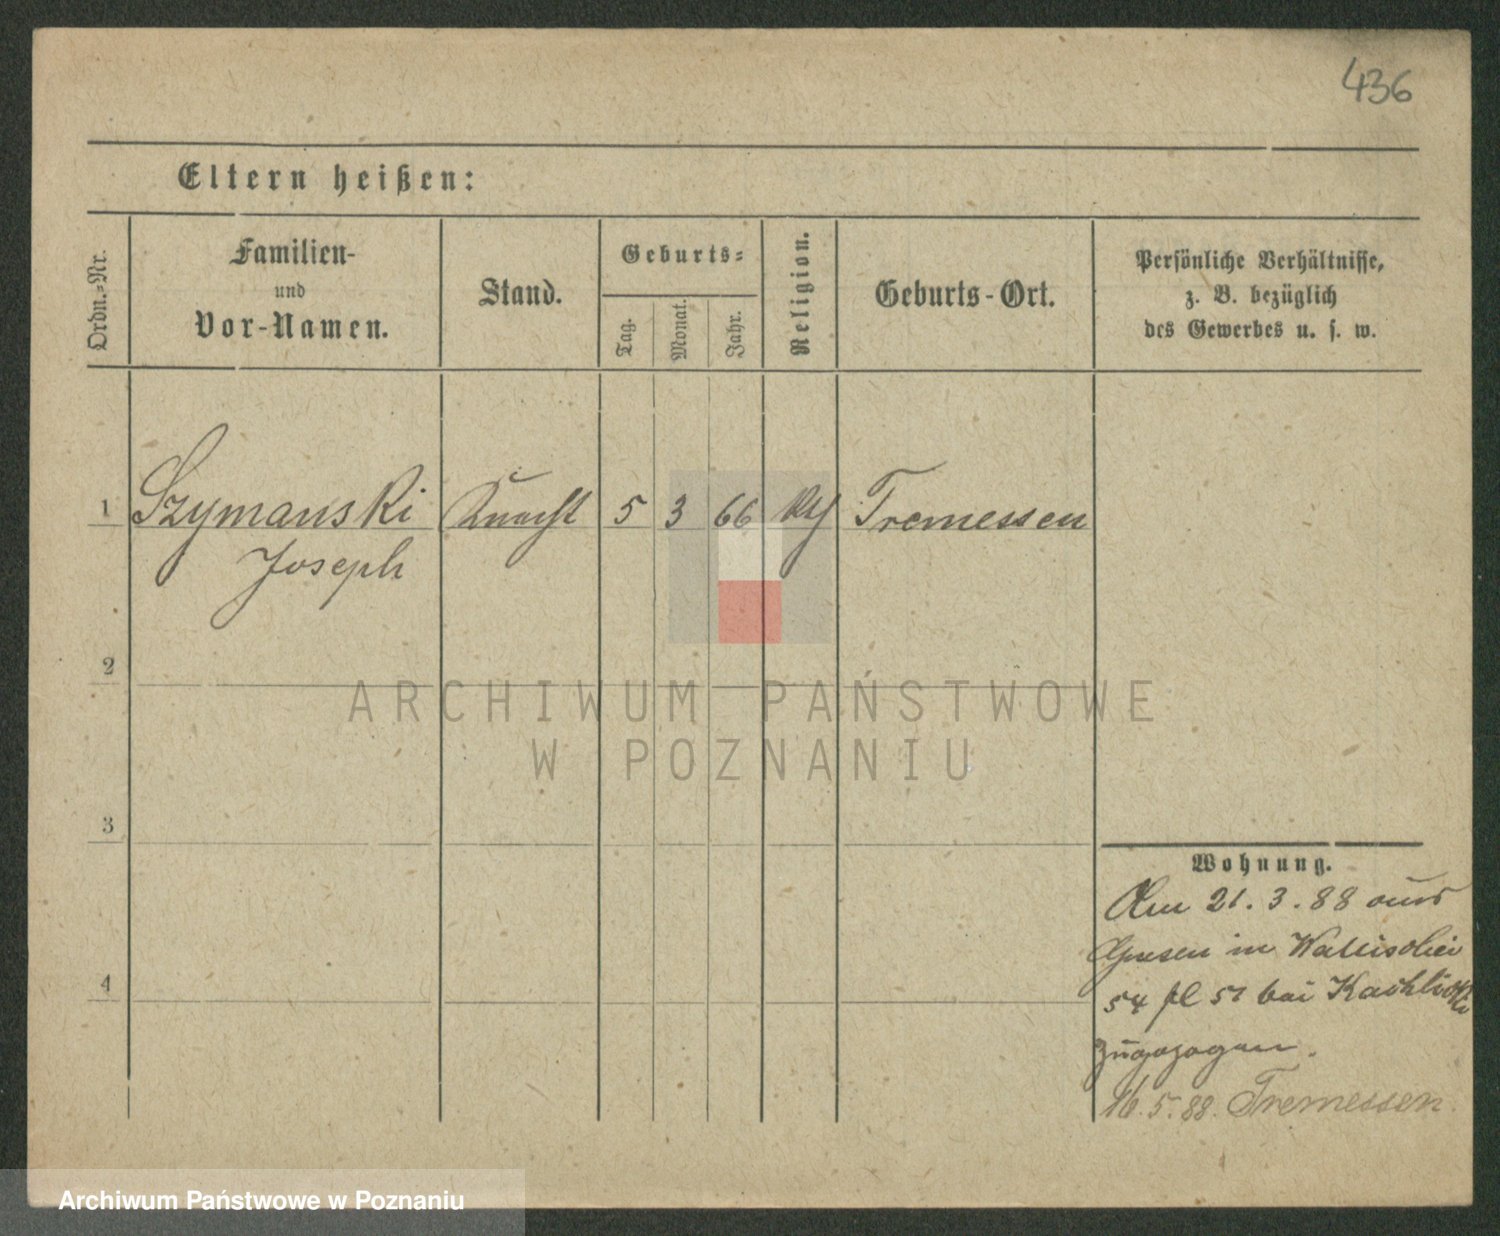 436
Eltern heißen:
Ordn.-Nr.
Familien-
und
Vor-Namen.
Stand.
Geburts-
Tag.
Monat.
Jahr.
Religion.
Geburts-Ort.
Persönliche Verhältnisse,
z. B. bezüglich
des Gewerbes u. s. w.
1 Szymanski Knecht 5 3 66 kth Tremessen
Joseph
2
ARCHIWUM PAŃSTWOWE
W POZNANIU
3
Wohnung.
Am 21. 3. 88 aus
Gnesen in Wallischei
4
54 pl 51 bei
zugezogen.
16. 5. 88. Tremessen
Archiwum Państwowe w Poznaniu